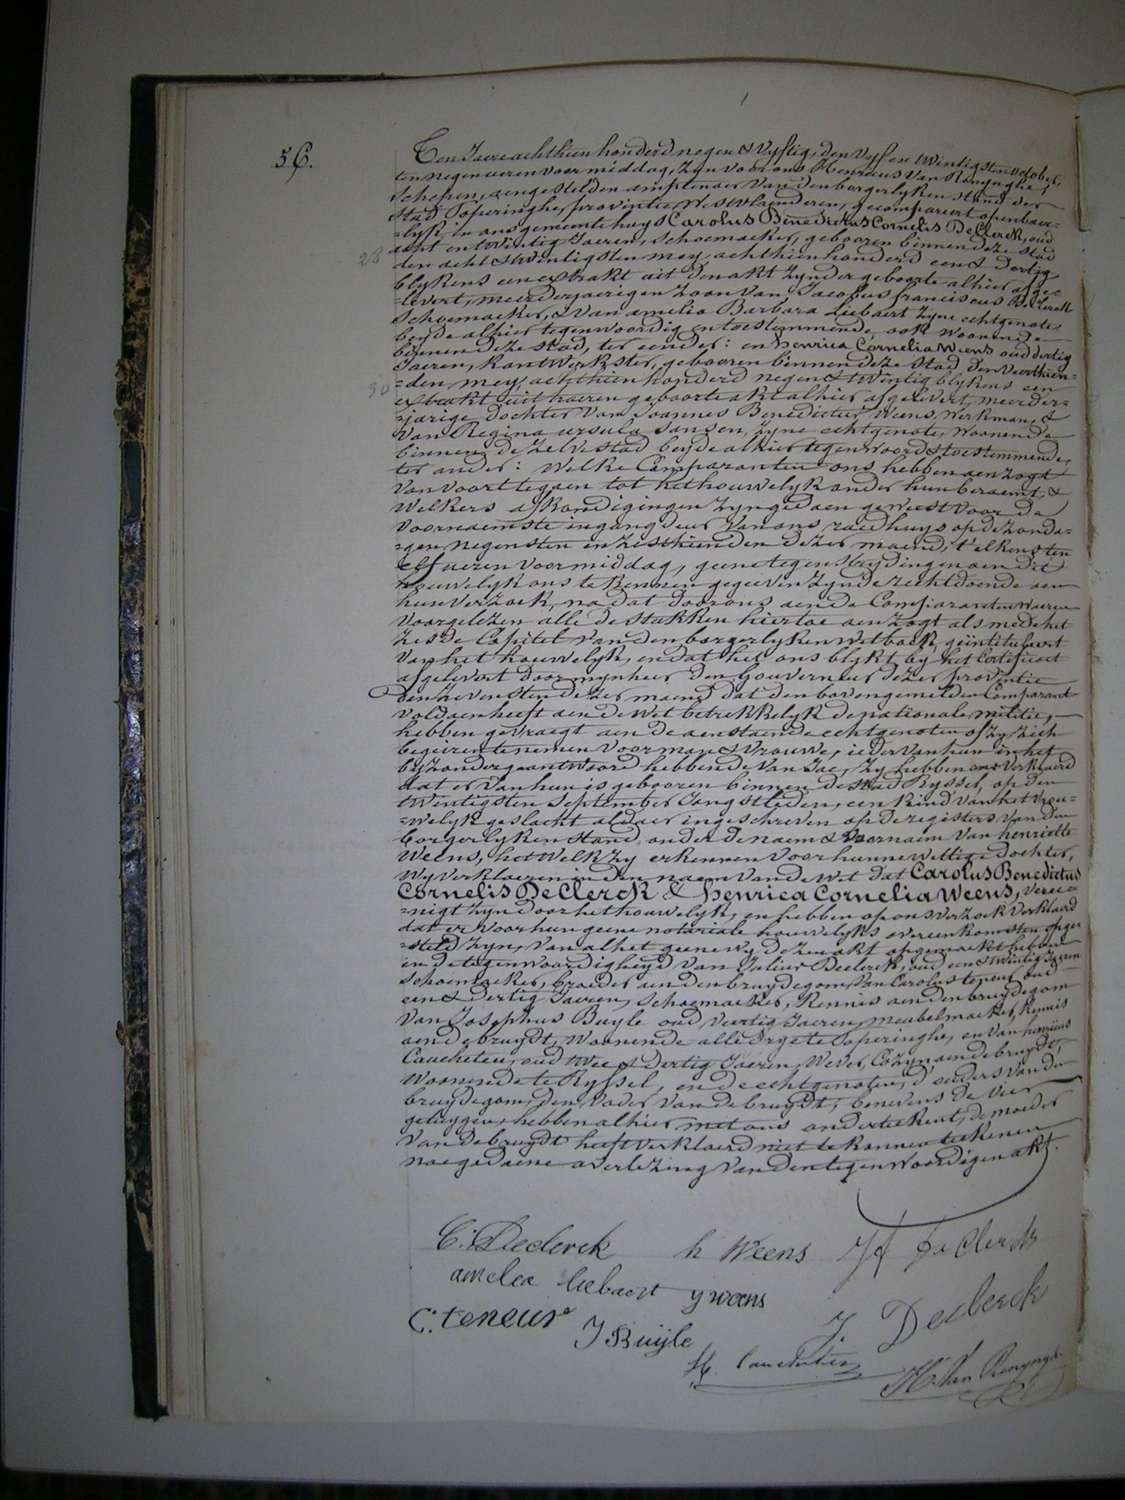 56.
Ten Jaere achthien honderd negen & vyftig, den vyf en twintigsten october,
ten negen ueren voormiddag, zyn voor ons Henricus Van Renynghe,
schepen, aengestelden amptenaer van den borgerlyken stand der
stad Poperinghe, provintie Westvlaenderen, gecompareert openbaer-
=lyk in ons gemeentehuys Carolus Benedictus Cornelis DeClerck, oud
28 acht en twintig Jaeren, schoemaeker, gebooren binnen deze stad
den acht & twintigsten mey achthien honderd een & dertig
blykens een extrakt uit den akt zynder geboorte alhier afge-
=levert, meerderjaerigen zoon van Jacobus franciscus DeClerck
schoemaeker, & van amelia Barbara Liebaert zyne echtgenote
beyde alhier tegenwoordig en toestemmende, ook woonende
binnen deze stad, ter eender: en henrica Cornelia Weens oud dertig
Jaeren, kantwerkster, gebooren binnen deze stad den veerthien-
30 =den mey achthien honderd negen & twintig blykens een
extrakt uit haeren geboorteakt alhier afgelevert, meerder-
=jarige dochter van Joannes Benedictus Weens, werkman, &
van Regina ursula Jansen, zyne echtgenote, woonende
binnen de zelve stad beyde alhier tegenwoord & toestemmende,
ter ander: Welke Comparanten ons hebben aenzogt
van voort te gaen tot het houwelyk onder hun beraemt, &
welkers afkondigingen zyn gedaen geweest voor de
voornaemste ingangdeur van ons raedhuys op de zonda-
=gen negensten en zesthienden dezer maend, t'elkens ten
elf ueren voormiddag, geene tegenstrydingen aen dit
houwelyk ons te kennen gegeeven zynde, rechtdoende aen
hun verzoek, na dat door ons aen de Comparanten waeren
voorgelezen alle de stukken hiertoe aenzogt als mede het
zesde Capitel van den borgerlyken wetboek, geïntituleert
van het houwelyk, en dat het ons blykt by het Certificaet
afgelevert door mynheer den Gouverneur dezer provintie
den zevensten dezer maend dat den bovengemelden Comparant
voldaen heeft aen de wet betrekkelyk de nationale militie,
hebben gevraegt aen de aenstaende echtgenoten of zy zich
begeeren te nemen voor man & vrouwe, ieder van hun in het
byzonder geantwoord hebbende van Jae, zy hebben ons verklaerd
dat er van hun is gebooren binnen de stad Ryssel, op den
twintigsten September Jongstleden, een kind van het vrou-
=welyk geslacht aldaer ingeschreven op de registers van den
borgerlyken stand onder den naem & voornaem van henriette
Weens, het welk zy erkennen voor hunne wettige dochter,
wy verklaeren in den naem van de wet dat Carolus Benedictus
Cornelis DeClerck & henrica Cornelia Weens, veree-
=nigt zyn door het houwelyk, en hebben op ons verzoek verklaerd
dat er voor hun geene notariale houwelyks overeenkomsten opge-
=steld zyn, van al het geene wy dezen akt opgemaekt hebben
in de tegenwoordigheyd van Julius Declerck, oud een & twintig Jaeren
schoemaeker, broeder aen den bruydegom, van Carolus teneur oud
een & dertig Jaeren, schoemaeker, kennis aen den bruydegom
van Josephus Buyle oud veertig Jaeren, meubelmaeker, kennis
aen de bruydt, woonende alle drye te Poperinghe, en van henricus
Caucheteux, oud twee & dertig Jaeren, wever, Cozyn aen de bruydt,
woonende te Ryssel, en de echtgenoten, d'ouders van den
bruydegom, den vader van de bruydt, benevens de vier
getuygen, hebben alhier met ons onderteekent, de moeder
van de bruydt heeft verklaerd niet te konnen teekenen
naer gedaene overlezing van den tegenwoordigen akt.
C. Declerck h Weens J f De Clerck
amelea liebaert y weens
C. teneur J Buyle J. Declerck
H. Van Renynghe